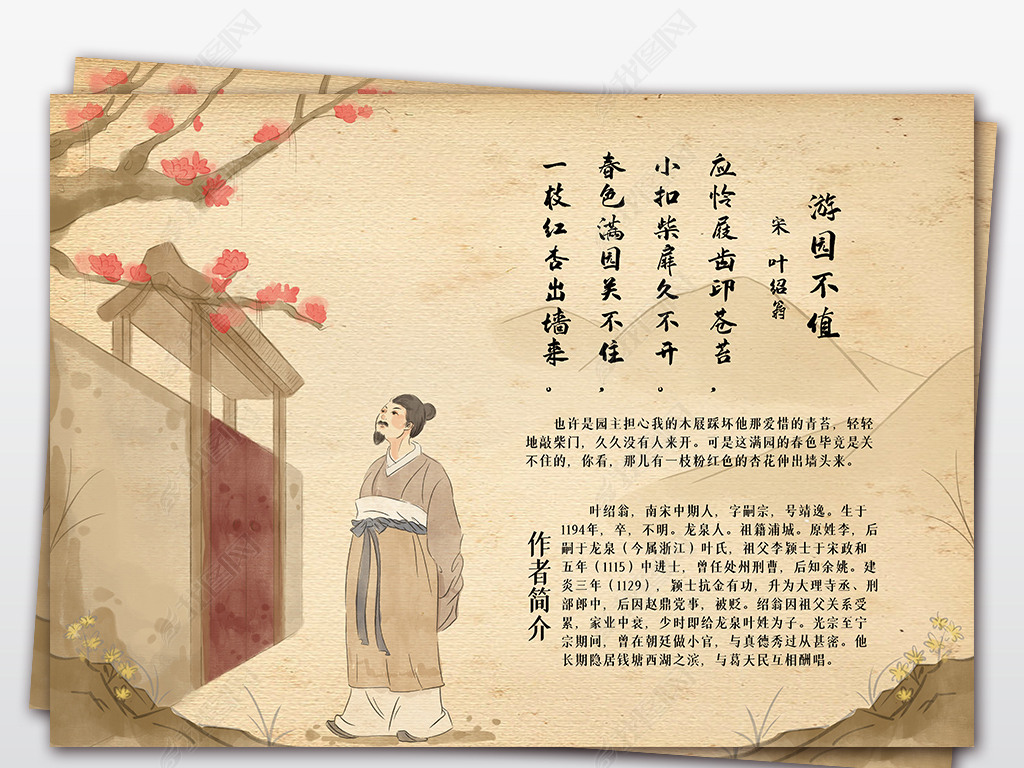 游园不值
宋 叶绍翁
应怜屐齿印苍苔，
小扣柴扉久不开。
春色满园关不住，
一枝红杏出墙来。
也许是园主担心我的木屐踩坏他那爱惜的青苔，轻轻
地敲柴门，久久没有人来开。可是这满园的春色毕竟是关
不住的，你看，那儿有一枝粉红色的杏花伸出墙头来。
作者简介
叶绍翁，南宋中期人，字嗣宗，号靖逸。生于
1194年，卒，不明。龙泉人。祖籍浦城。原姓李，后
嗣于龙泉（今属浙江）叶氏，祖父李颖士于宋政和
五年（1115）中进士，曾任处州刑曹，后知余姚。建
炎三年（1129），颖士抗金有功，升为大理寺丞、刑
部郎中，后因赵鼎党事，被贬。绍翁因祖父关系受
累，家业中衰，少时即给龙泉叶姓为子。光宗至宁
宗期间，曾在朝廷做小官，与真德秀过从甚密。他
长期隐居钱塘西湖之滨，与葛天民互相酬唱。